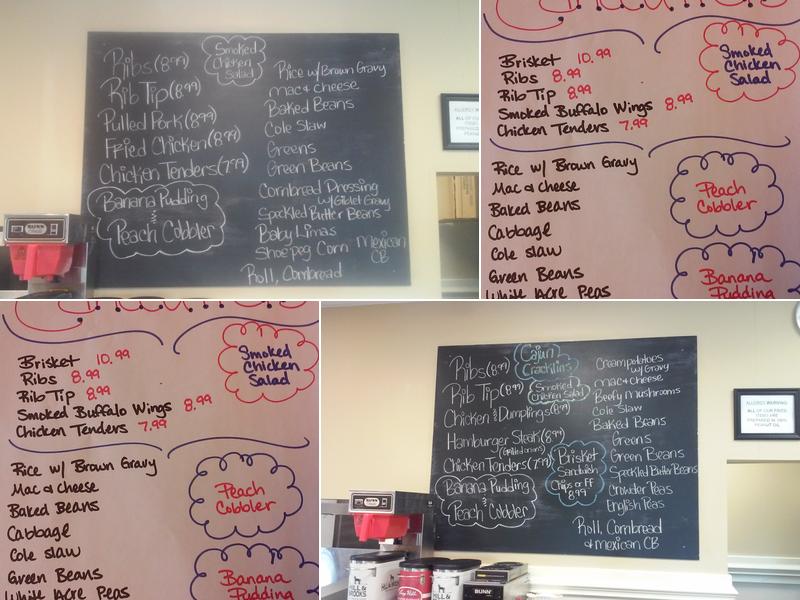 Smoked
Chicken
Salad
Ribs (8.99)
Rib Tip (8.99)
Pulled Pork (8.99)
Fried Chicken (8.99)
Chicken Tenders (7.99)
Banana Pudding
&
Peach Cobbler
Rice w/ Brown Gravy
mac & cheese
Baked Beans
Cole Slaw
Greens
Green Beans
Cornbread Dressing
w/ Giblet Gravy
Speckled Butter Beans
Baby Limas
Shoepeg Corn
Mexican
CB
Roll, Cornbread
BUNN
Brisket 10.99
Ribs 8.99
Rib Tip 8.99
Smoked Buffalo Wings 8.99
Chicken Tenders 7.99
Smoked
Chicken
Salad
Rice w/ Brown Gravy
Mac & Cheese
Baked Beans
Cabbage
Cole Slaw
Green Beans
White Acre Peas
Peach
Cobbler
Banana
Pudding
Brisket 10.99
Ribs 8.99
Rib Tip 8.99
Smoked Buffalo Wings 8.99
Chicken Tenders 7.99
Smoked
Chicken
Salad
Rice w/ Brown Gravy
Mac & Cheese
Baked Beans
Cabbage
Cole Slaw
Green Beans
White Acre Peas
Peach
Cobbler
Banana
Pudding
Cajun
Cracklins
Smoked
Chicken Salad
Ribs (8.99)
Rib Tip (8.99)
Chicken & Dumplings (8.99)
Hamburger Steak (8.99)
(Grilled onions)
Chicken Tenders (7.99)
Banana Pudding
&
Peach Cobbler
Brisket
Sandwich
Chips or FF
8.99
Creampotatoes
w/ Gravy
mac & cheese
Beefy mushrooms
Cole Slaw
Baked Beans
Greens
Green Beans
Speckled Butter Beans
Crowder Peas
English Peas
Roll, Cornbread
& mexican CB
ALLERGY WARNING:
ALL OF OUR FRIED
ITEMS ARE
PREPARED IN 100%
PEANUT OIL
BUNN
HILL &
BROOKS
BUNN